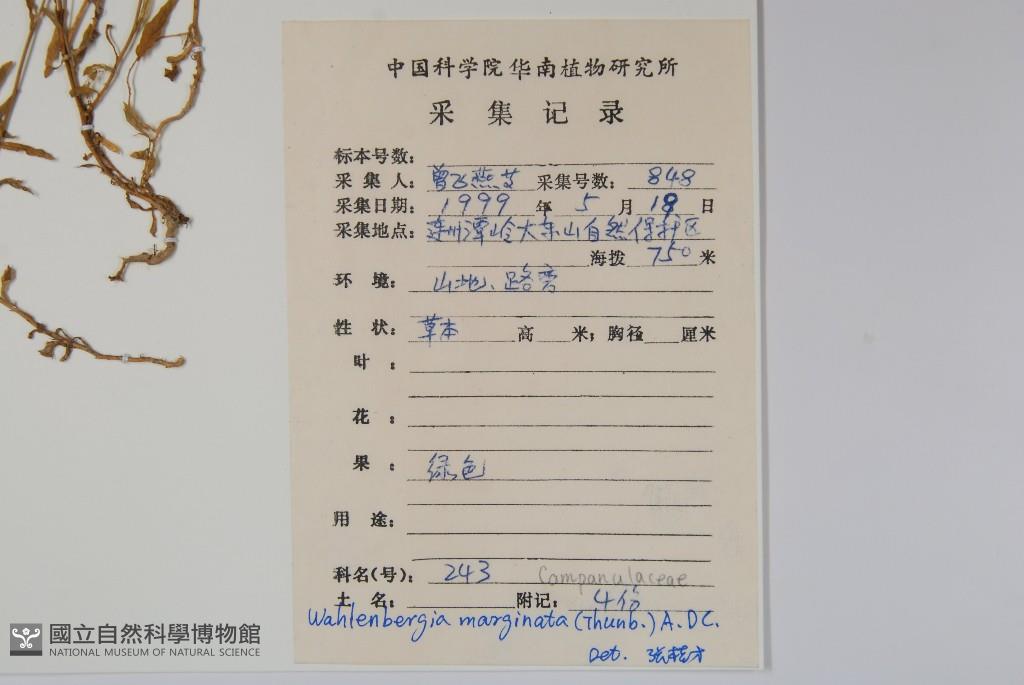 中国科学院华南植物研究所
采集记录
标本号数:
采集人: 曾飞燕等 采集号数: 848
采集日期: 1999 年 5 月 18 日
采集地点: 连州潭岭大东山自然保护区
海拨 750 米
环境: 山地、路旁
性状: 草本 高 米; 胸径 厘米
叶:
花:
果: 绿色
用途:
科名(号): 243 Campanulaceae
土名: 附记: 4份
Wahlenbergia marginata (Thunb.) A. DC.
Det. 张桂才
國立自然科學博物館
NATIONAL MUSEUM OF NATURAL SCIENCE